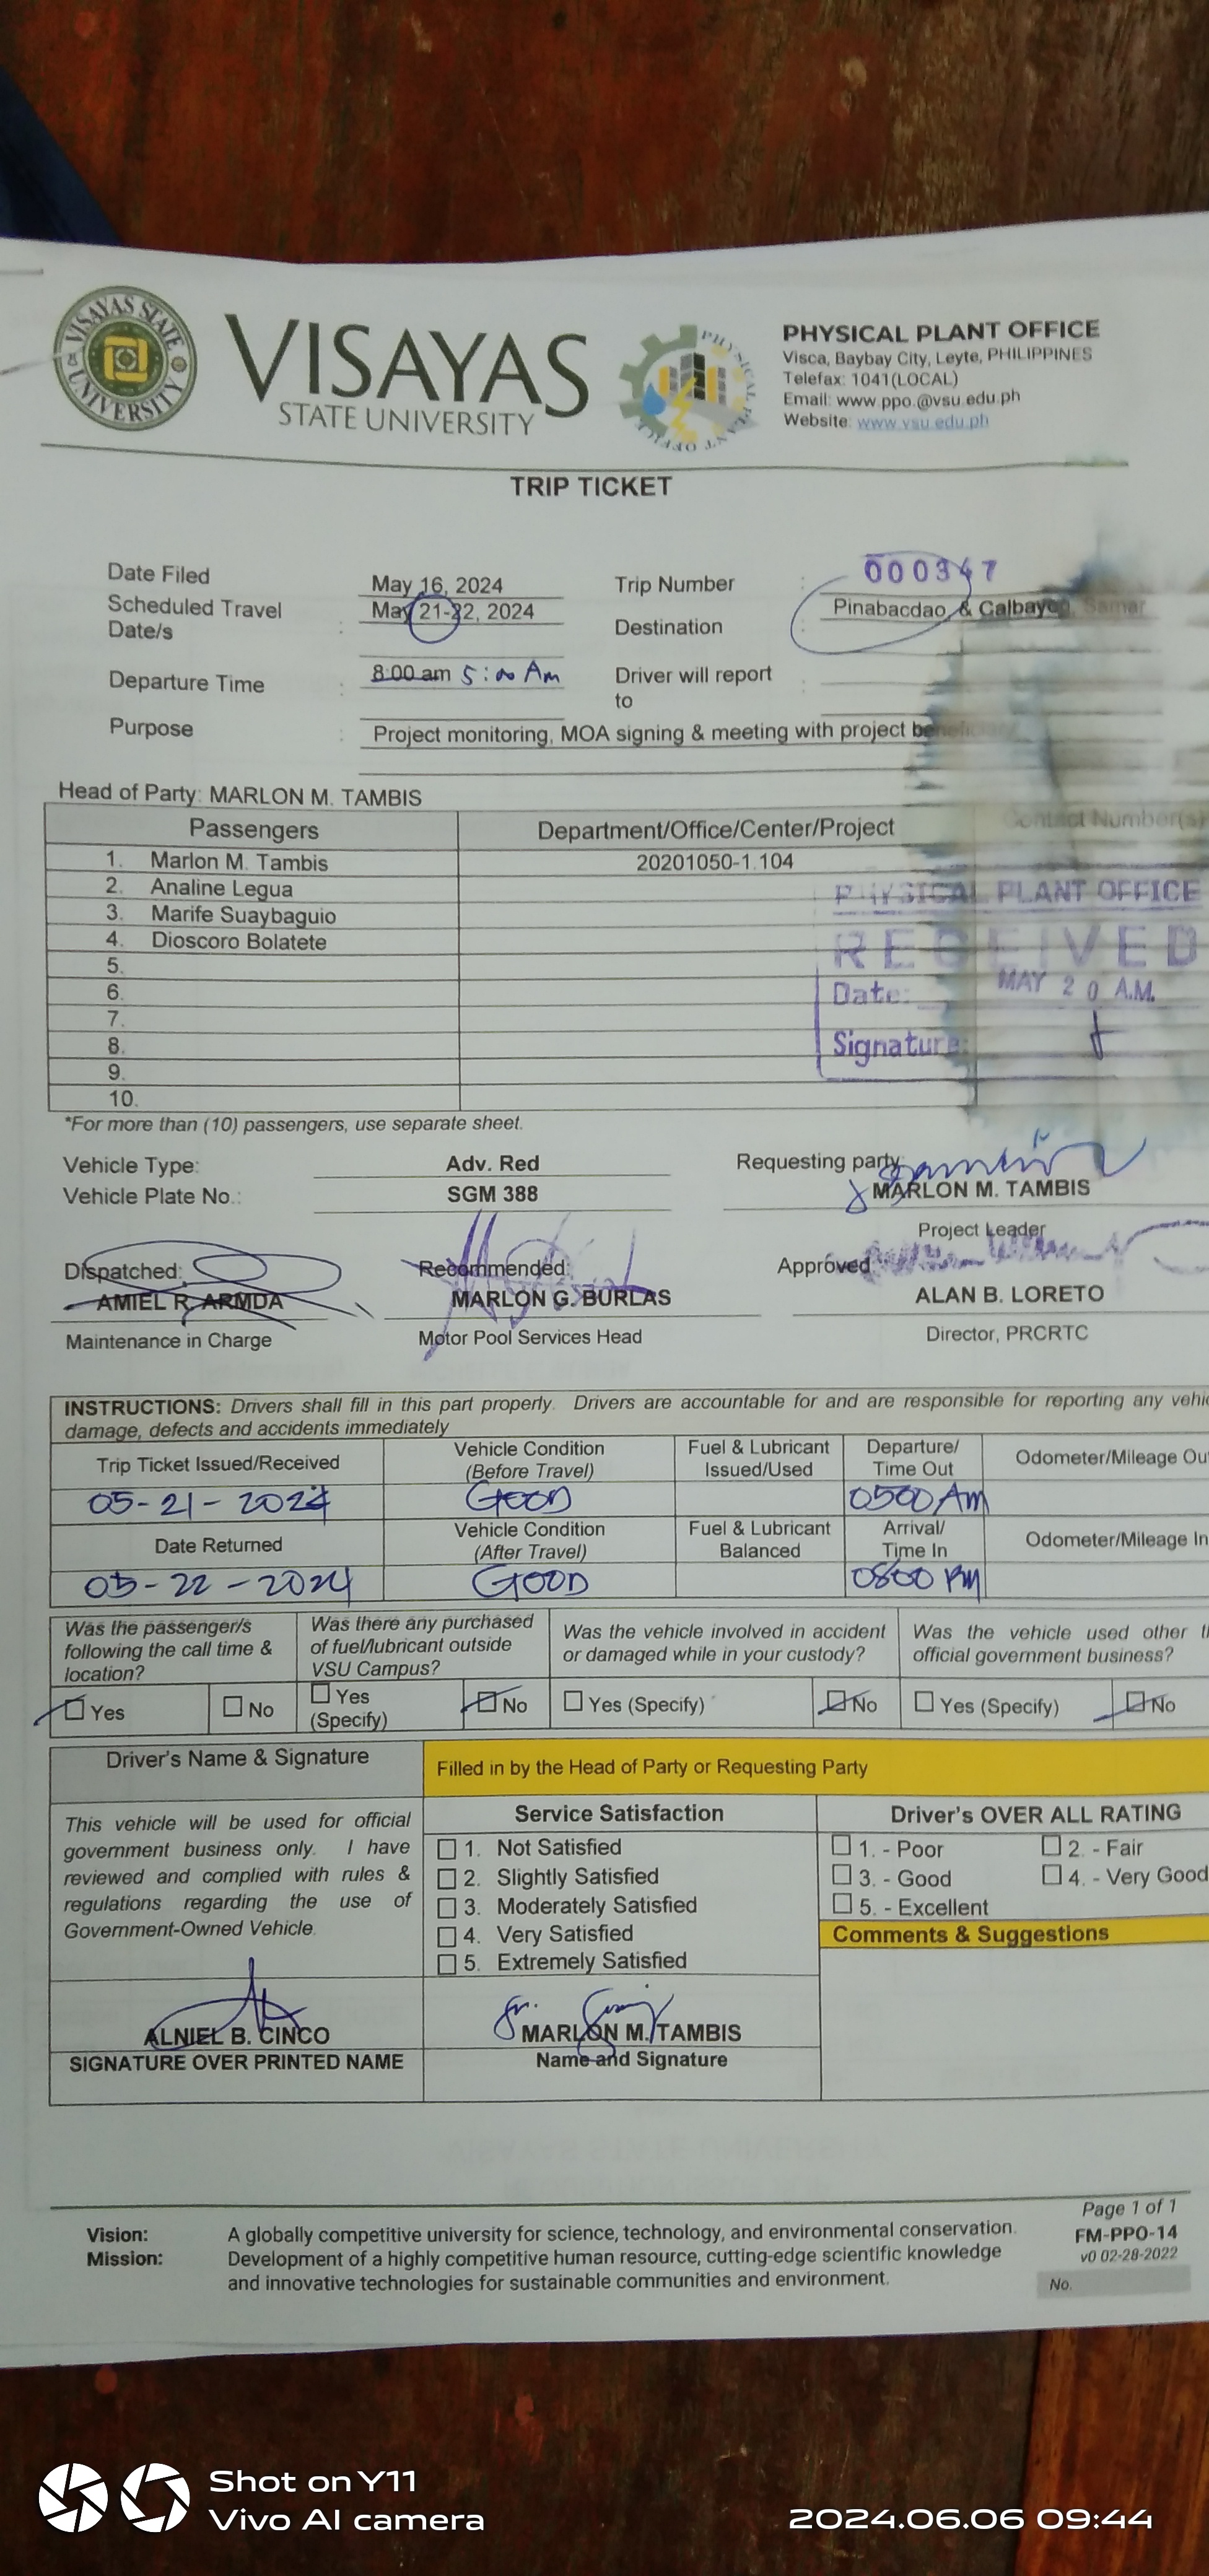 VISAYAS STATE UNIVERSITY
VISAYAS
STATE UNIVERSITY
PHYSICAL PLANT OFFICE
PHYSICAL PLANT OFFICE
Visca, Baybay City, Leyte, PHILIPPINES
Telefax: 1041(LOCAL)
Email: www.ppo.@vsu.edu.ph
Website: www.vsu.edu.ph
TRIP TICKET
Date Filed May 16, 2024 Trip Number : 000347
Scheduled Travel Date/s : May 21-22, 2024 Destination : Pinabacdao & Calbayog, Samar
Departure Time : 8:00 am 5:00 Am Driver will report to :
Purpose : Project monitoring, MOA signing & meeting with project
Head of Party: MARLON M. TAMBIS
Passengers Department/Office/Center/Project Contact Number(s)
1. Marlon M. Tambis 20201050-1.104
2. Analine Legua
3. Marife Suaybaguio
4. Dioscoro Bolatete
5.
6.
7.
8.
9.
10.
PHYSICAL PLANT OFFICE
RECEIVED
Date: MAY 20 A.M.
Signature:
*For more than (10) passengers, use separate sheet.
Vehicle Type: Adv. Red Requesting party:
Vehicle Plate No.: SGM 388 MARLON M. TAMBIS
Project Leader
Dispatched: Recommended: Approved
AMIEL R. ARMDA MARLON G. BURLAS ALAN B. LORETO
Maintenance in Charge Motor Pool Services Head Director, PRCRTC
INSTRUCTIONS: Drivers shall fill in this part properly. Drivers are accountable for and are responsible for reporting any vehic
damage, defects and accidents immediately
Trip Ticket Issued/Received Vehicle Condition (Before Travel) Fuel & Lubricant Issued/Used Departure/ Time Out Odometer/Mileage Ou
05-21-2024 GOOD 0500 Am
Date Returned Vehicle Condition (After Travel) Fuel & Lubricant Balanced Arrival/ Time In Odometer/Mileage In
05-22-2024 GOOD 0800 PM
Was the passenger/s following the call time & location? Was there any purchased of fuel/lubricant outside VSU Campus? Was the vehicle involved in accident or damaged while in your custody? Was the vehicle used other th official government business?
Yes No Yes (Specify) No Yes (Specify) No Yes (Specify) No
Driver's Name & Signature Filled in by the Head of Party or Requesting Party
This vehicle will be used for official
government business only. I have
reviewed and complied with rules &
regulations regarding the use of
Government-Owned Vehicle.
Service Satisfaction
1. Not Satisfied
2. Slightly Satisfied
3. Moderately Satisfied
4. Very Satisfied
5. Extremely Satisfied
Driver's OVER ALL RATING
1. - Poor 2. - Fair
3. - Good 4. - Very Good
5. - Excellent
Comments & Suggestions
ALNIEL B. CINCO MARLON M. TAMBIS
SIGNATURE OVER PRINTED NAME Name and Signature
Page 1 of 1
FM-PPO-14
v0 02-28-2022
No.
Vision: A globally competitive university for science, technology, and environmental conservation.
Mission: Development of a highly competitive human resource, cutting-edge scientific knowledge
and innovative technologies for sustainable communities and environment.
Shot on Y11
Vivo AI camera
2024.06.06 09:44